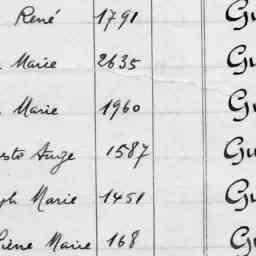 René 1791 Gu
Marie 2635 Gu
Marie 1960 Gu
Ange 1587 Gu
ph Marie 1451 Gu
Marie 168 Gu